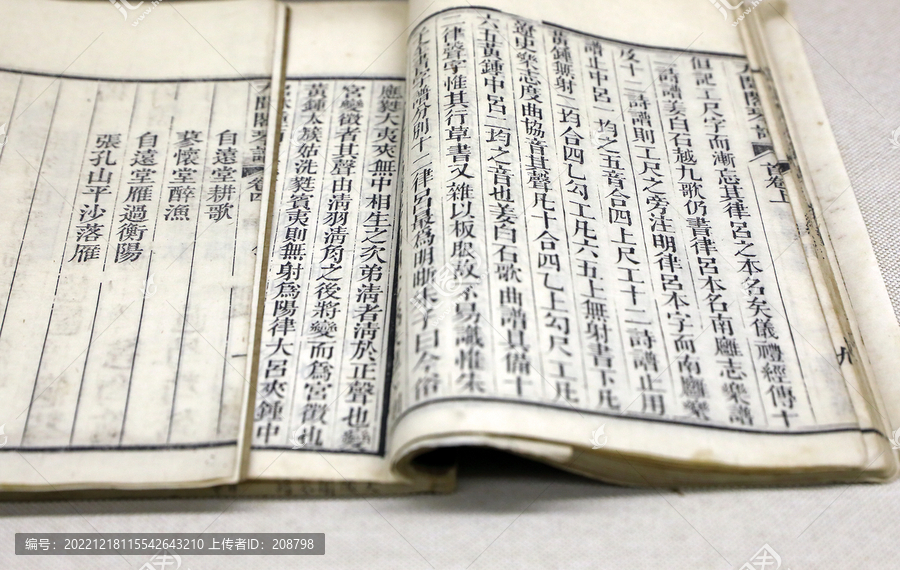 但記工尺字而漸忘其律呂之本名矣儀禮經傳十
二詩譜姜白石越九歌仍書律呂本名南廱志樂譜
及十二詩譜則工尺之旁注明律呂本字而南廱樂
譜止中呂 均之五音合四上尺工十二詩譜止用
黃鍾無射二均合四乙勾工凡六五上無射書下凡
遼史樂志度曲協音其聲凡十合四乙上勾尺工凡
六五黃鍾中呂二均之音也姜白石歌曲譜具備十
二律聲字惟其行草書又雜以板眼故不易識惟朱
字譜分別十二律呂最為明晰朱子曰今俗
應蕤大夷夾無中相生之次弟清者清於正聲也變
宮變徵者其聲由清羽清角之後將變而為宮徵也
黃鍾太簇姑洗蕤賓夷則無射為陽律大呂夾鍾中
卷四
自遠堂耕歌
蓼懷堂醉漁
自遠堂雁過衡陽
張孔山平沙落雁
卷上
九
编号：20221218115542643210 上传者ID：208798